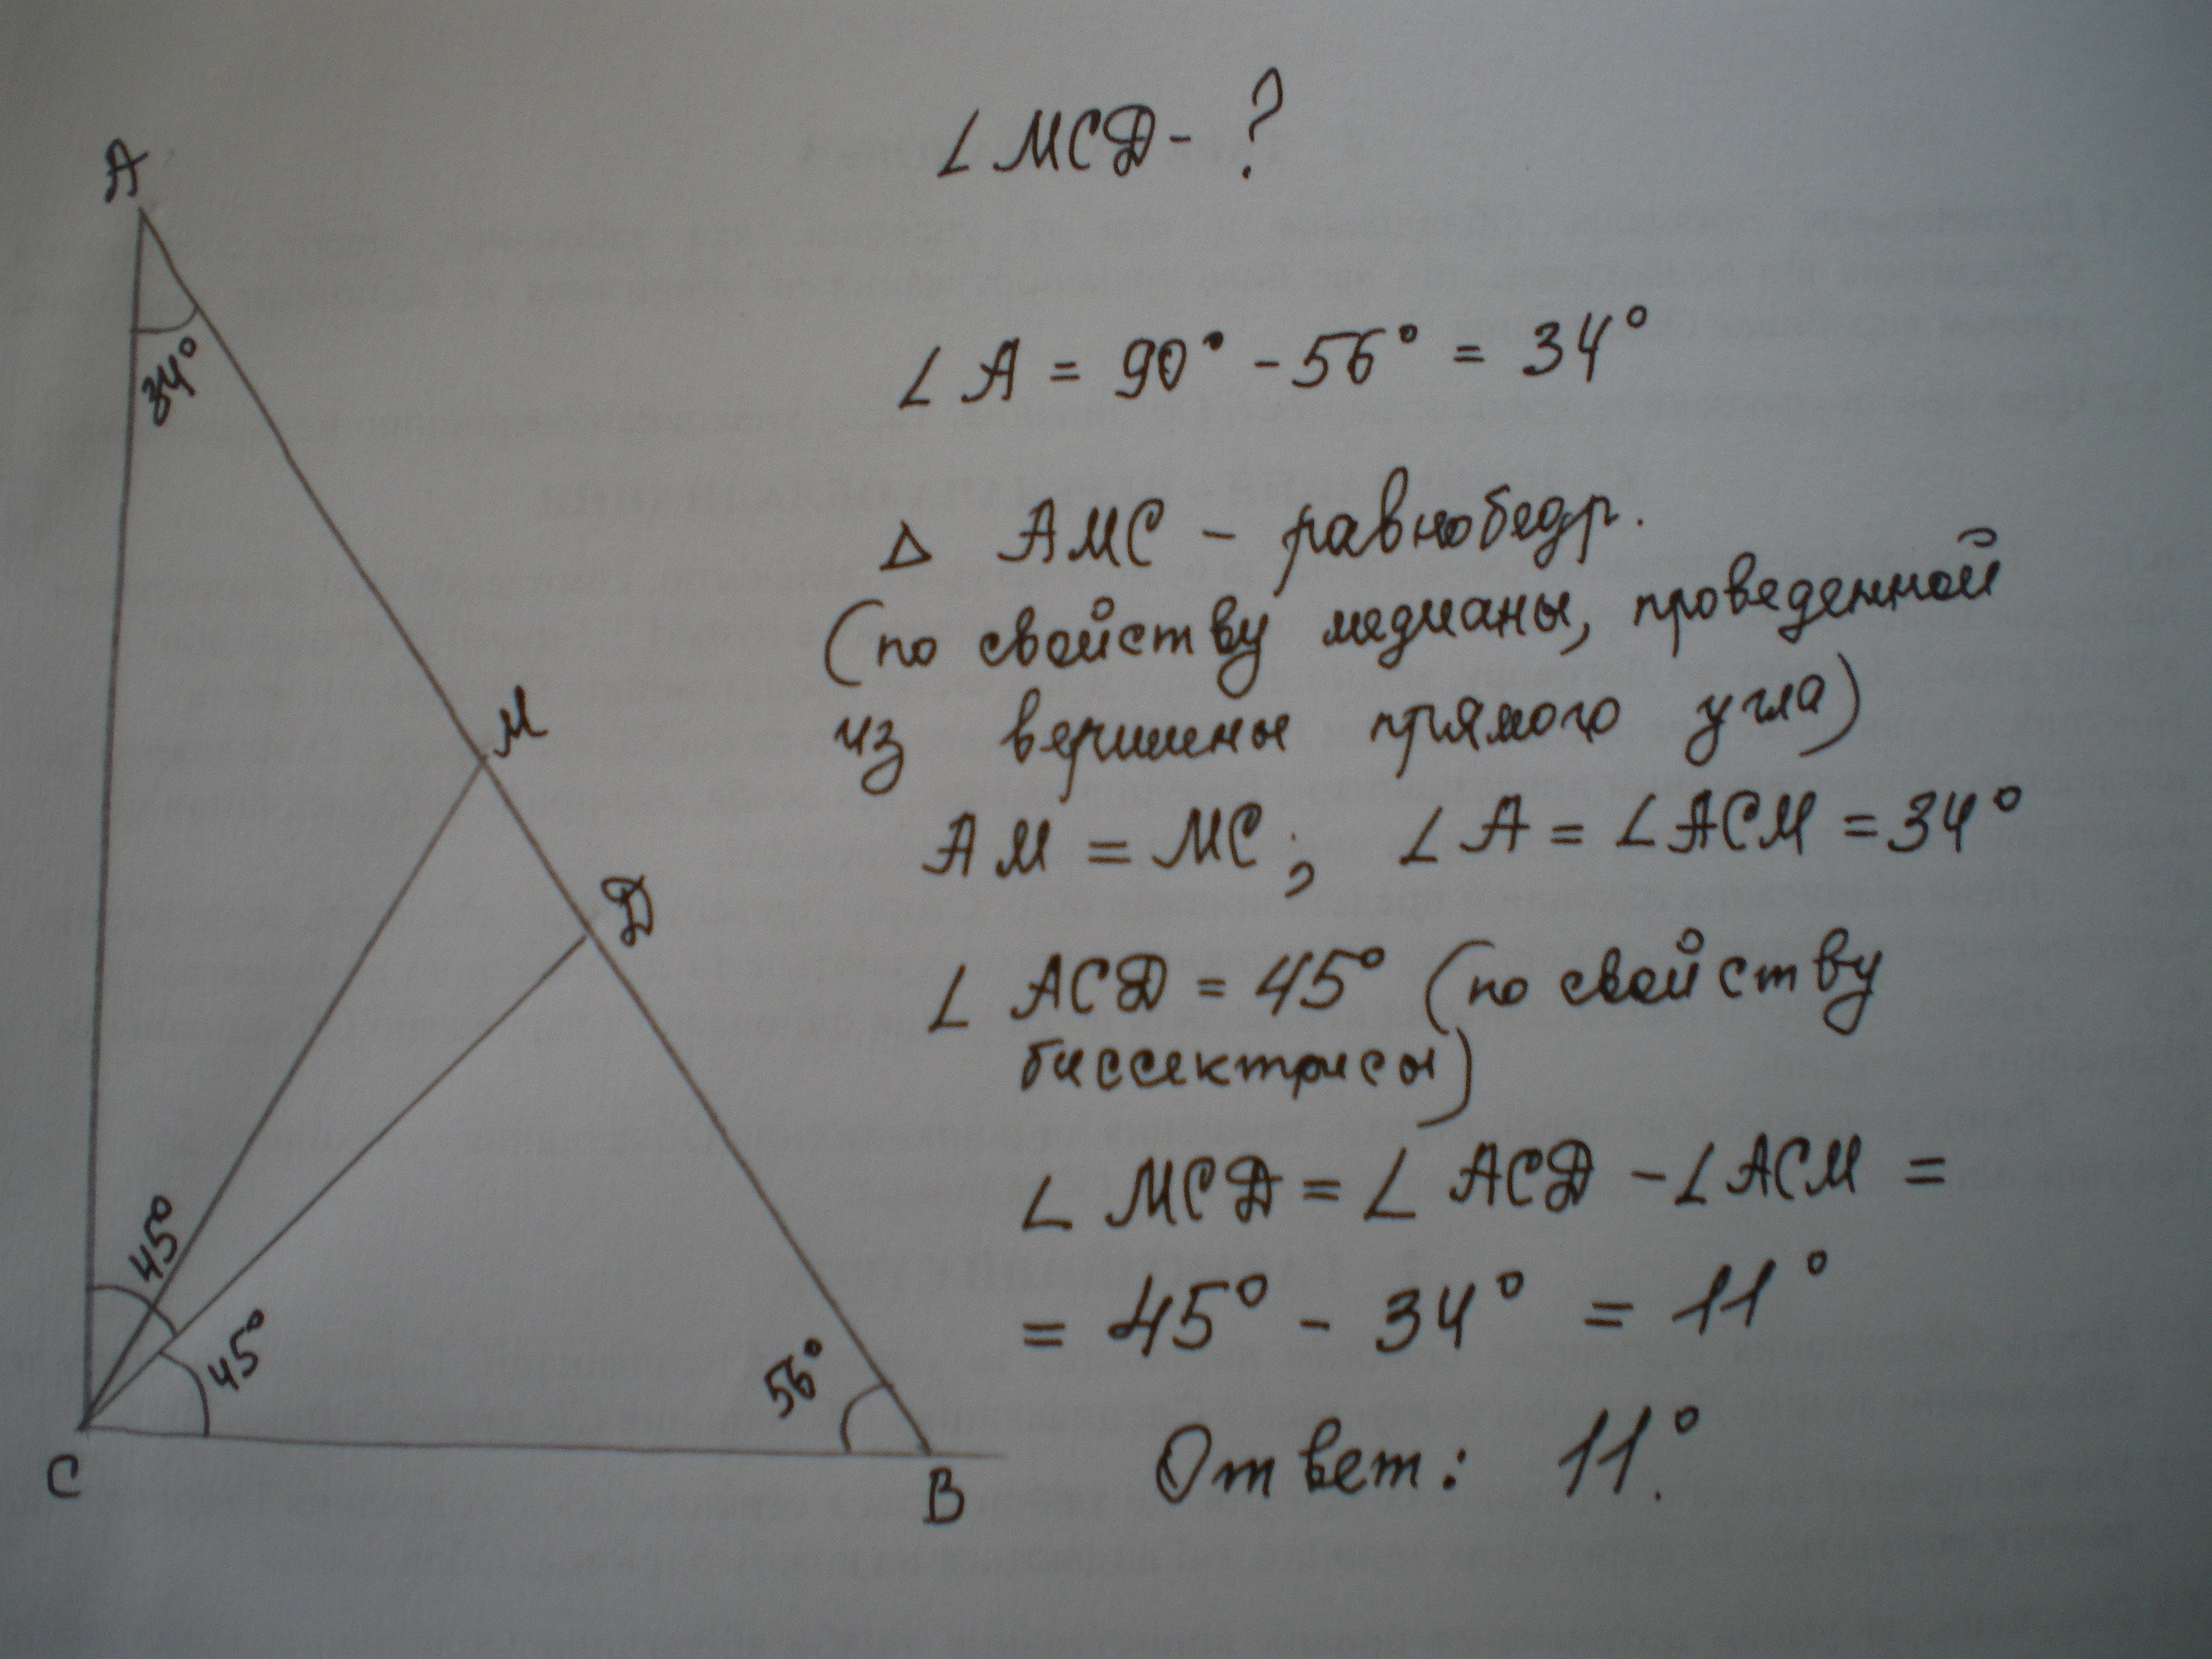 ∠MCD - ?
A
34°
∠A = 90° - 56° = 34°
△ AMC - равнобедр.
(по свойству медианы, проведенной
из вершины прямого угла)
M
AM = MC; ∠A = ∠ACM = 34°
D
∠ACD = 45° (по свойству
биссектрисы)
∠MCD = ∠ACD - ∠ACM =
= 45° - 34° = 11°
45°
45°
56°
C
B
Ответ: 11°.